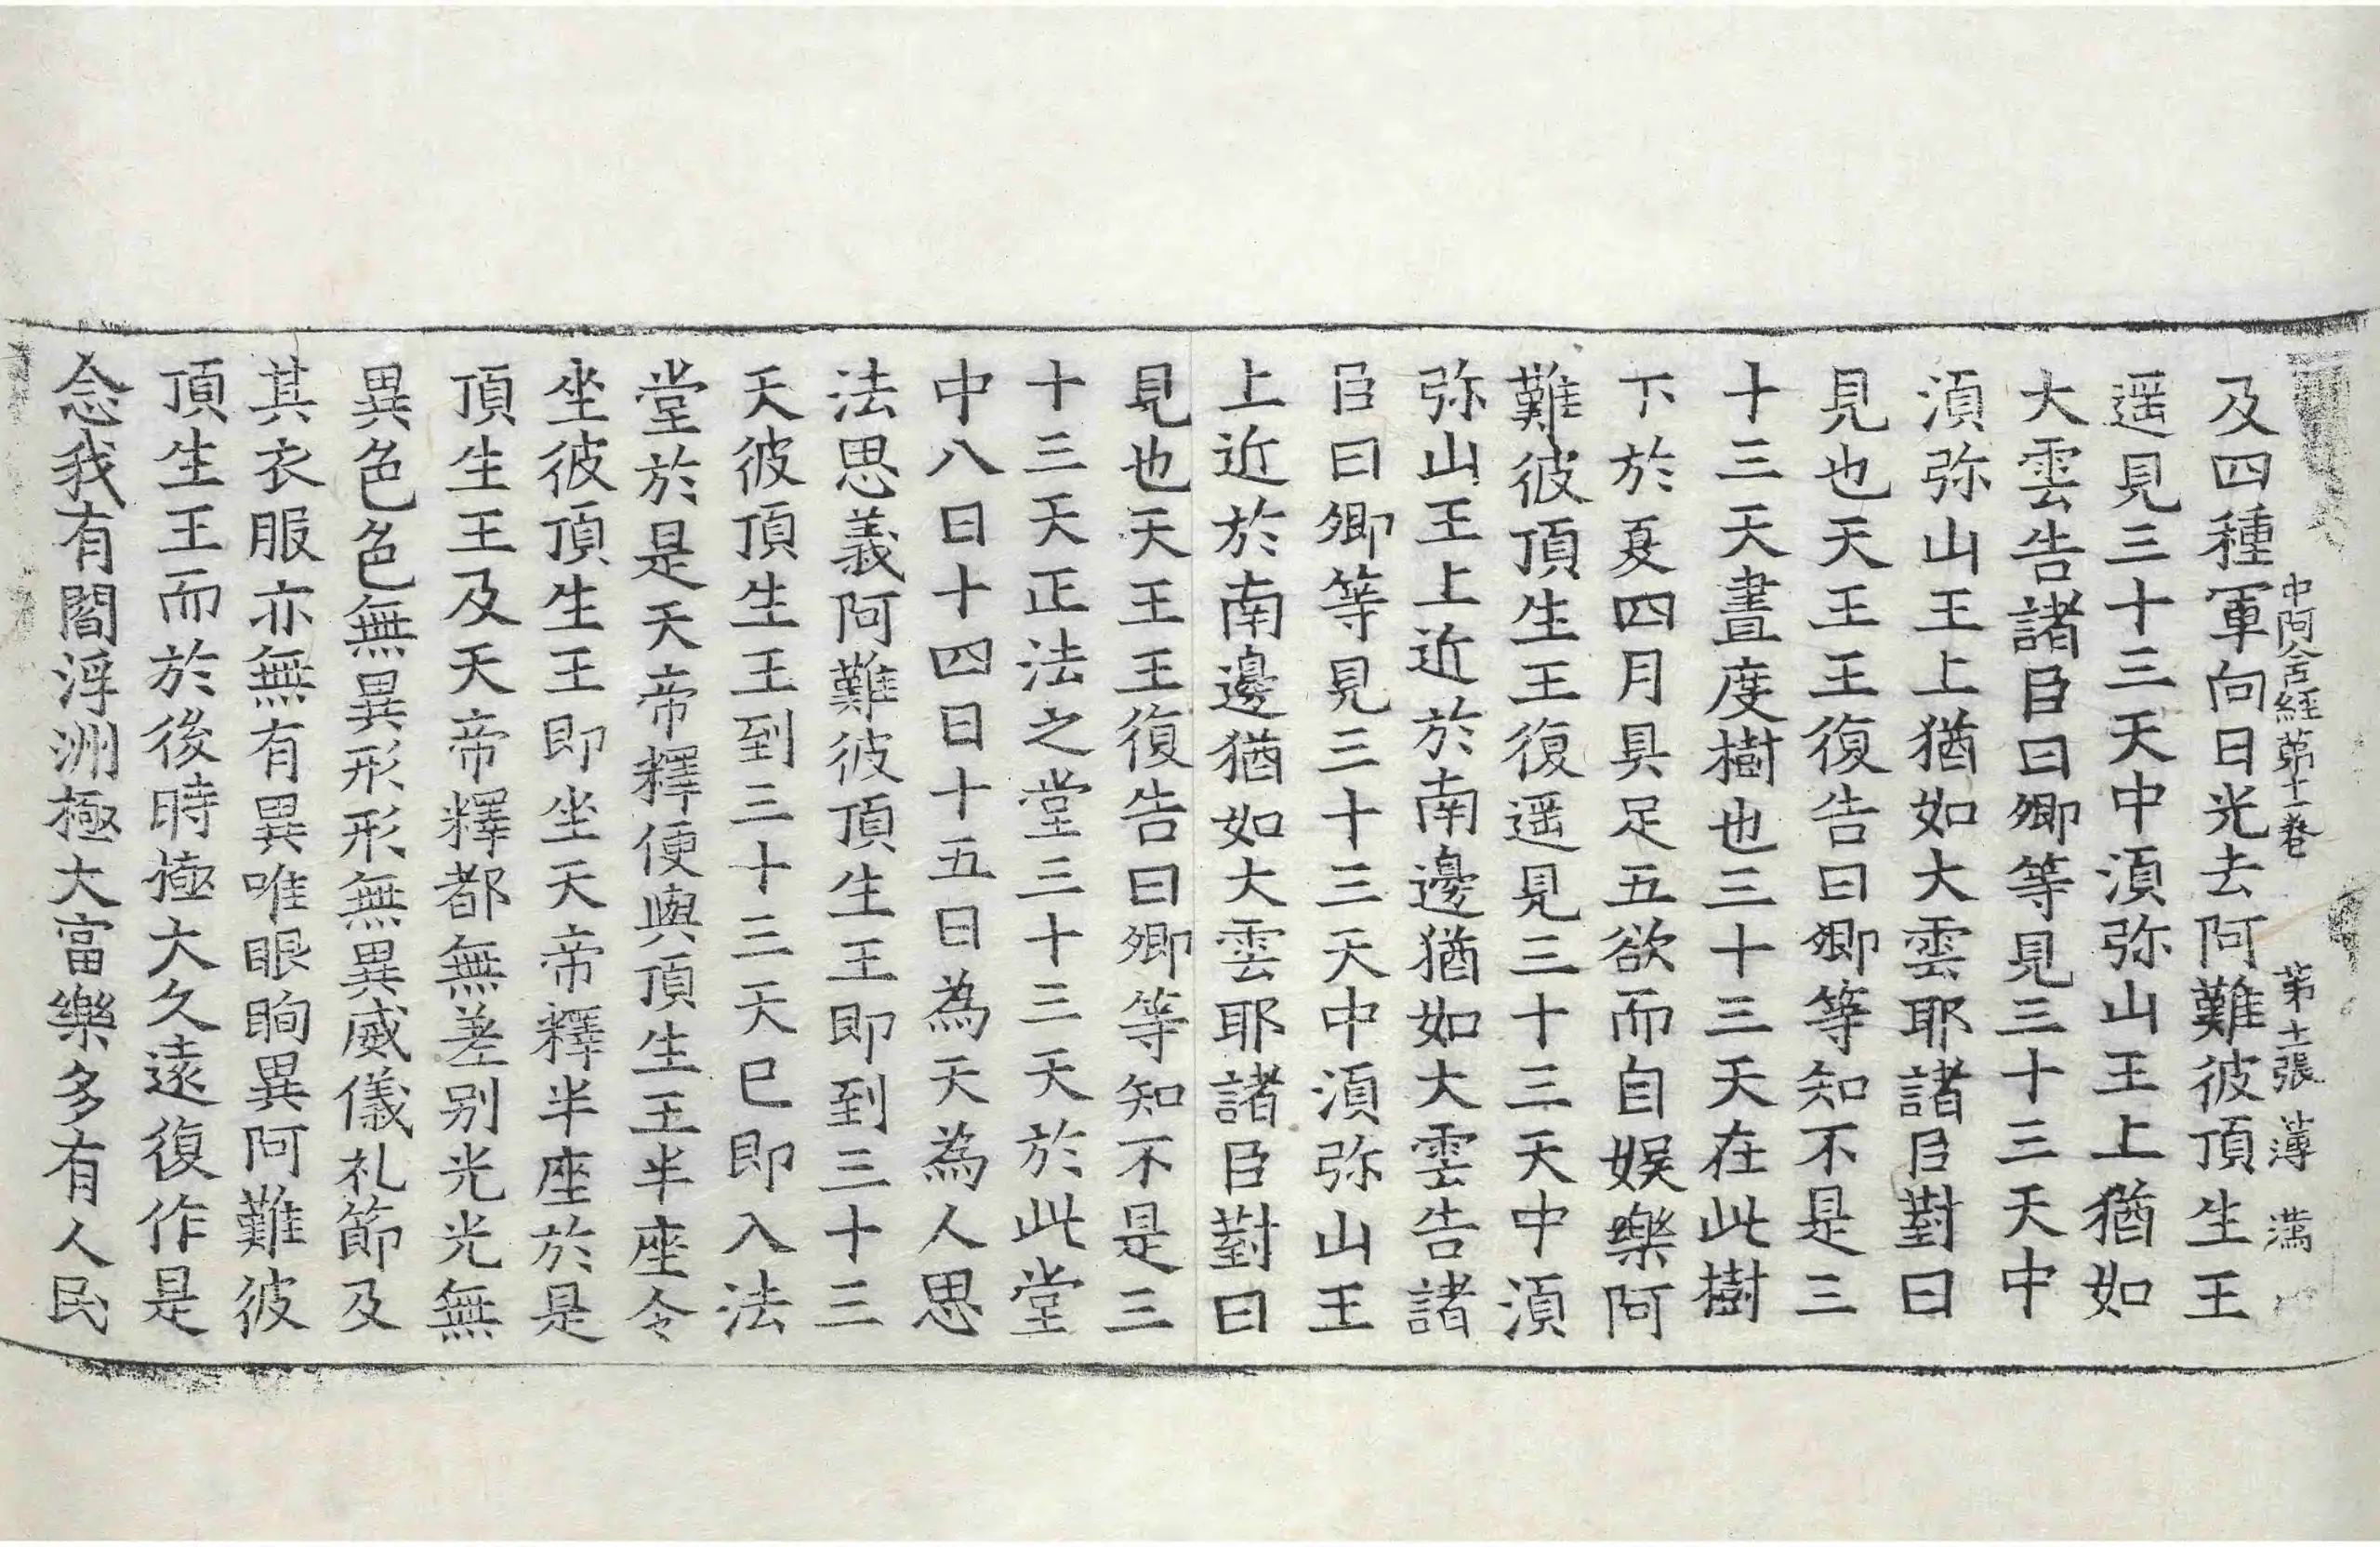 中阿含経第十一卷 第十一張 薄 滿
及四種軍向日光去阿難彼頂生王
遥見三十三天中湏弥山王上猶如
大雲告諸臣曰卿等見三十三天中
湏弥山王上猶如大雲耶諸臣對曰
見也天王王復告曰卿等知不是三
十三天晝度樹也三十三天在此樹
下於夏四月具足五欲而自娛樂阿
難彼頂生王復遥見三十三天中湏
弥山王上近於南邊猶如大雲告諸
臣曰卿等見三十三天中湏弥山王
上近於南邊猶如大雲耶諸臣對曰
見也天王王復告曰卿等知不是三
十三天正法之堂三十三天於此堂
中八日十四日十五日為天為人思
法思義阿難彼頂生王即到三十三
天彼頂生王到三十三天已即入法
堂於是天帝釋便與頂生王半座令
坐彼頂生王即坐天帝釋半座於是
頂生王及天帝釋都無差别光光無
異色色無異形形無異威儀礼節及
其衣服亦無有異唯眼眴異阿難彼
頂生王而於後時極大久遠復作是
念我有閻浮洲極大富樂多有人民